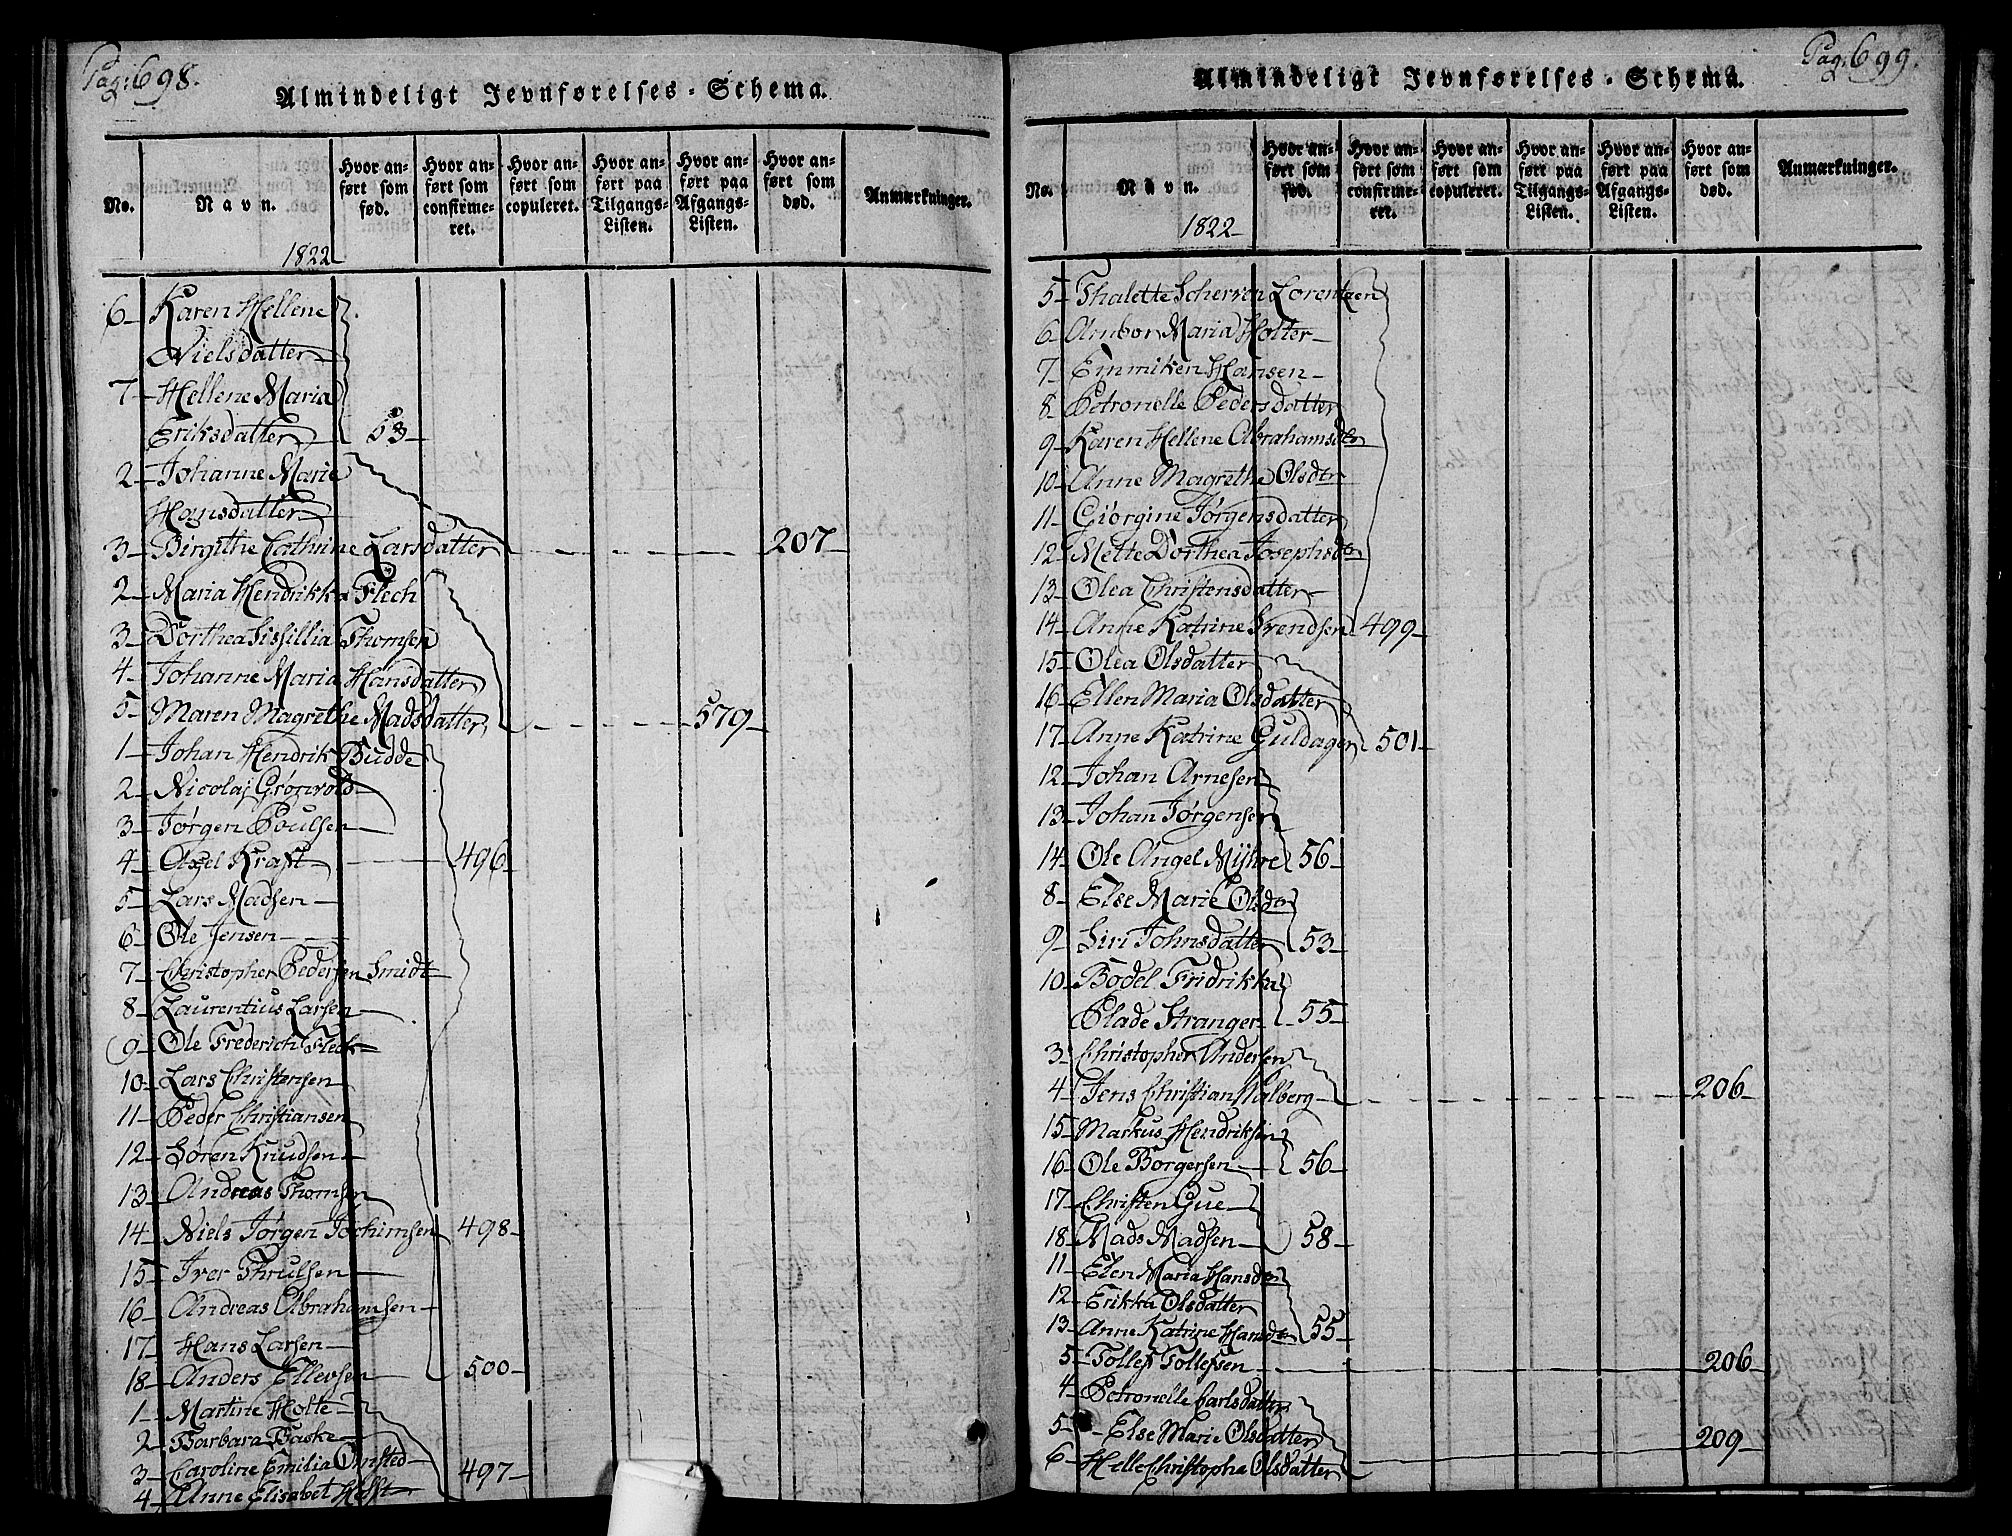 Pag: 698.
Almindeligt Jevnførelses-Schema.
No.
Navn.
Hvor anført som fød.
Hvor anført som confirmeret.
Hvor anført som copuleret.
Hvor anført paa Tilgangs-Listen.
Hvor anført paa Afgangs-Listen.
Hvor anført som død.
Anmærkninger.
1822
6 Karen Hellene
Nielsdatter
7 Hellene Maria
Eriksdatter 53
2 Johanne Marie
Hansdatter
3 Birgithe Cathrine Larsdatter 207
2 Maria Hendrikka Flech
3 Dorthea Sissillia Thomsen
4 Johanne Maria Hansdatter
5 Maren Magrethe Madsdatter 579
1 Johan Hendrik Budde
2 Nicolaj Grönvold
3 Jørgen Poulsen
4 Axel Kraft 496
5 Lars Madsen
6 Ole Jensen
7 Christopher Pedersen Smidt
8 Laurentius Larsen
9 Ole Frederich Fleck
10 Lars Christensen
11 Peder Christiansen
12 Søren Knudsen
13 Andreas Thomsen
14 Niels Jørgen Jochimsen 498
15 Iver Thrulsen
16 Andreas Abrahamsen
17 Hans Larsen
18 Anders Ellevsen 500
1 Martine Holte
2 Barbara Baske
3 Caroline Emilia Omsted
4 Anne Elisabet Helft 497
Pag: 699.
Almindeligt Jevnførelses-Schema.
No.
Navn.
Hvor anført som fød.
Hvor anført som confirmeret.
Hvor anført som copuleret.
Hvor anført paa Tilgangs-Listen.
Hvor anført paa Afgangs-Listen.
Hvor anført som død.
Anmærkninger.
1822
5 Thalette Scherven Lorentzen
6 Arnbor Maria Holter
7 Emmiken Hansen
8 Petronelle Pedersdatter
9 Karen Hellene Abrahamsdtr
10 Anne Magrethe Olsdtr
11 Giørgine Jørgensdatter
12 Mette Dorthea Josephsdtr
13 Olea Christensdatter
14 Anne Katrine Svendsen 499
15 Olea Olsdatter
16 Ellen Maria Olsdatter
17 Anne Katrine Guldager 501
12 Johan Arnesen
13 Johan Jørgensen
14 Ole Angel Myhre 56
8 Else Marie Olsdtr
9 Siri Johnsdatter 53
10 Bodel Fridrikka
Plade Stranger 55
3 Christopher Andersen
4 Jens Christian Walberg 206
15 Markus Hendriksen
16 Ole Borgersen 56
17 Christen Gue
18 Mads Madsen 58
11 Elen Maria Hansdtr
12 Erikka Olsdatter
13 Anne Katrine Hansdtr 55
5 Tollef Tollefsen 206
4 Petronelle Carlsdatter
5 Else Marie Olsdatter
6 Helle Christopha Olsdatter 209